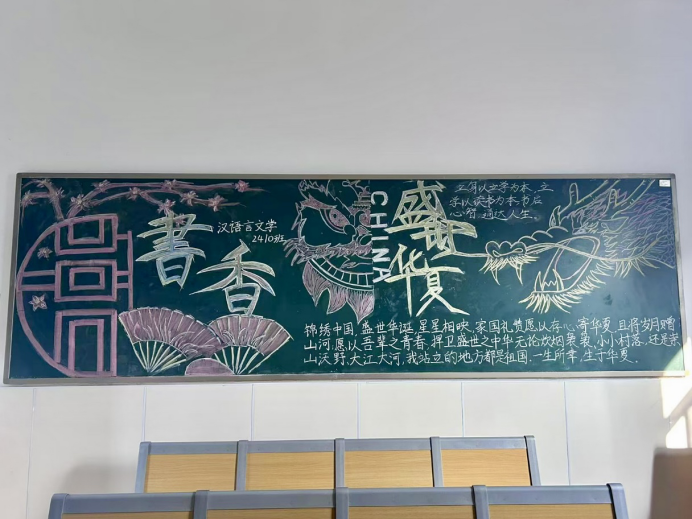 書香
汉语言文学
2410班
CHINA
盛世
华夏
立身以立学为本,立
学以读书为本.书启
心智,通达人生。
锦绣中国,盛世华诞,星星相映,家国礼赞愿以存心,寄华夏,且将岁月赠
山河.愿以吾辈之青春,捍卫盛世之中华无论炊烟袅袅,小小村落,还是崇
山沃野,大江大河,我站立的地方都是祖国.一生所幸,生于华夏.